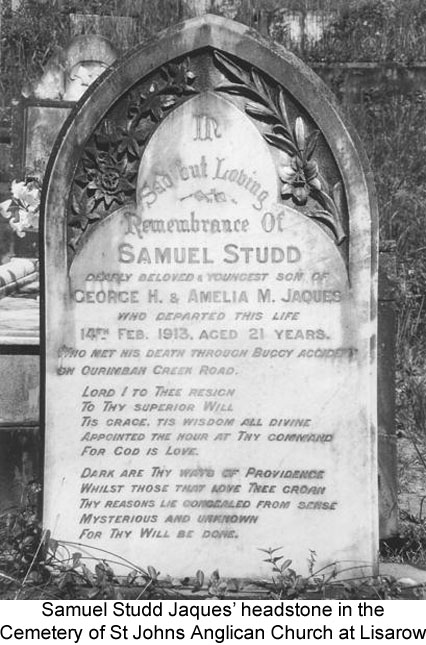 In
Sad but Loving
Remembrance Of
SAMUEL STUDD
DEARLY BELOVED & YOUNGEST SON OF
GEORGE H. & AMELIA M. JAQUES
WHO DEPARTED THIS LIFE
14TH FEB. 1913, AGED 21 YEARS.
WHO MET HIS DEATH THROUGH BUGGY ACCIDENT
ON OURIMBAH CREEK ROAD.
LORD I TO THEE RESIGN
TO THY SUPERIOR WILL
TIS GRACE, TIS WISDOM ALL DIVINE
APPOINTED THE HOUR AT THY COMMAND
FOR GOD IS LOVE.
DARK ARE THY WAYS OF PROVIDENCE
WHILST THOSE THAT LOVE THEE GROAN
THY REASONS LIE CONCEALED FROM SENSE
MYSTERIOUS AND UNKNOWN
FOR THY WILL BE DONE.
Samuel Studd Jaques' headstone in the
Cemetery of St Johns Anglican Church at Lisarow